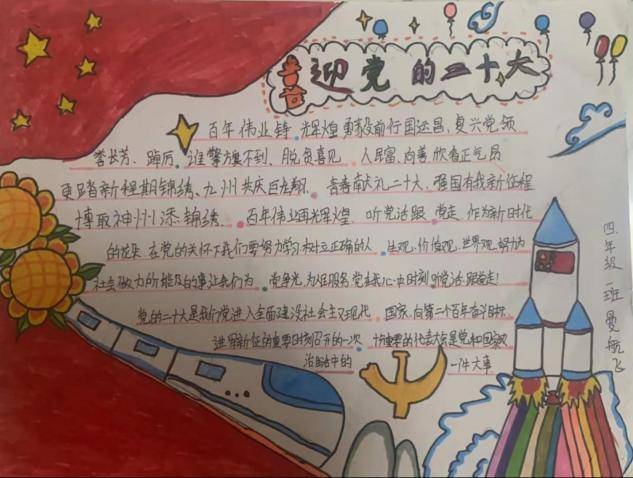 喜迎党的二十大
百年伟业铸辉煌 勇毅前行国运昌、复兴党领
誉长芳、踔厉 谁擎旗不到、脱贫喜见 人民富、向善欣看正气昂
更踏新程期锦绣、九州共庆巨龙翔、青春献礼二十大、强国有我新征程
博取神州添锦绣、百年伟业再光辉煌、听党话跟党走、作为新时代
的 在党的关怀下我们要努力学习、树立正确的人生观、价值观、世界观、努力为
社会做力所能及的事让我们为党争光、为 服务党 心中时刻听党话、跟党走!
党的二十大是我们党进入全面建设社会主义现代国家、向第二个百年奋斗目标
进军新征 重要时刻召开的一次十分重要的代表大会是党和国家政
治 中的一件大事
四年级一班 曼航飞